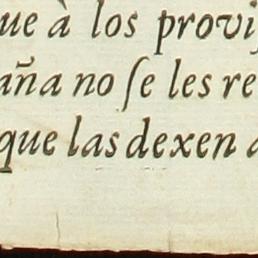 ue à los provis
aña no ſe les re
que las dexen a